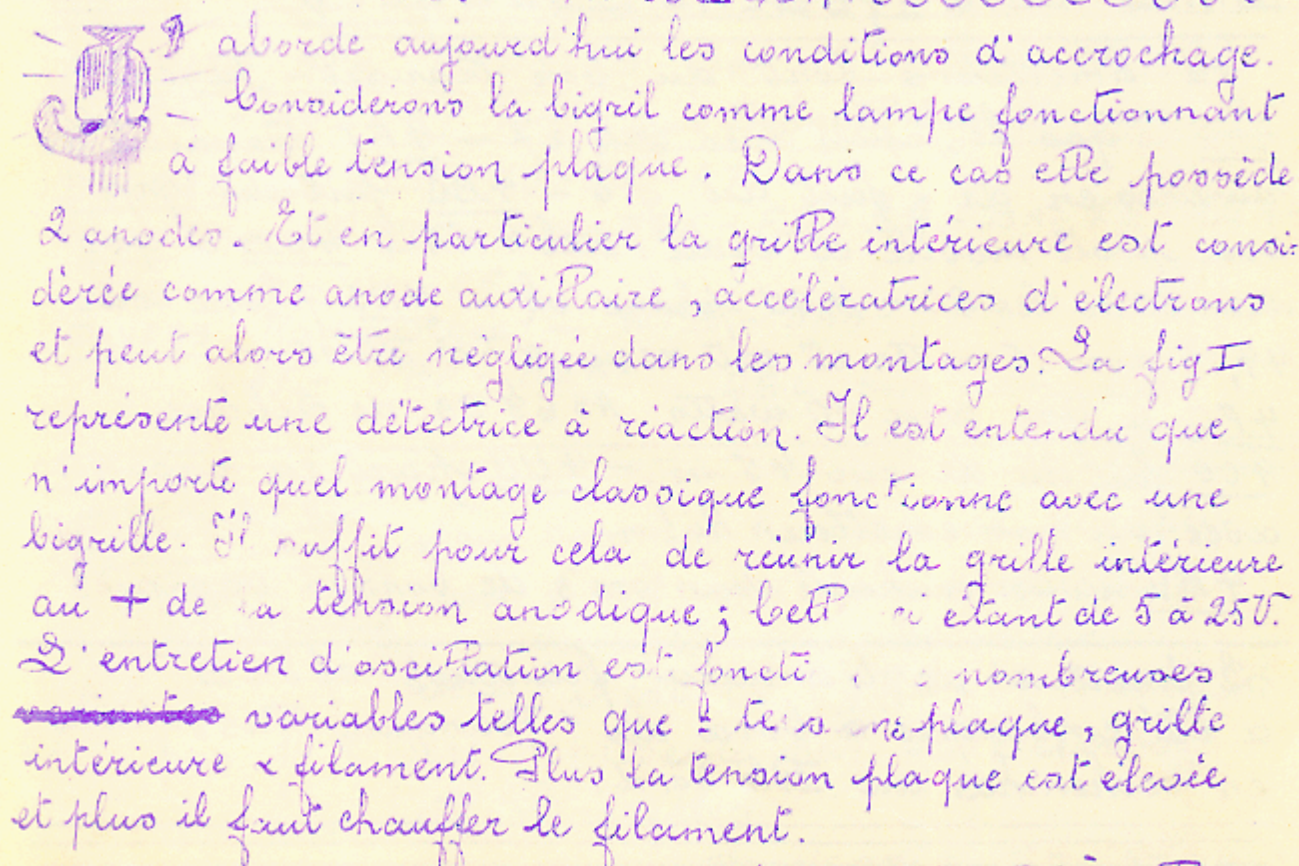 J' aborde aujourd'hui les conditions d'accrochage.
Considerons la bigril comme lampe fonctionnant
à faible tension plaque. Dans ce cas elle possède
2 anodes. Et en particulier la grille intérieure est consi-
dérée comme anode auxillaire, accélératrices d'électrons
et peut alors être négligée dans les montages. La fig I
représente une détectrice à réaction. Il est entendu que
n'importe quel montage classique fonctionne avec une
bigrille. Il suffit pour cela de réunir la grille intérieure
au + de la tension anodique; étant de 5 à 25V.
L'entretien d'oscillation est nombreuses
variables telles que plaque, grille
intérieure & filament. Plus la tension plaque est élevée
et plus il faut chauffer le filament.